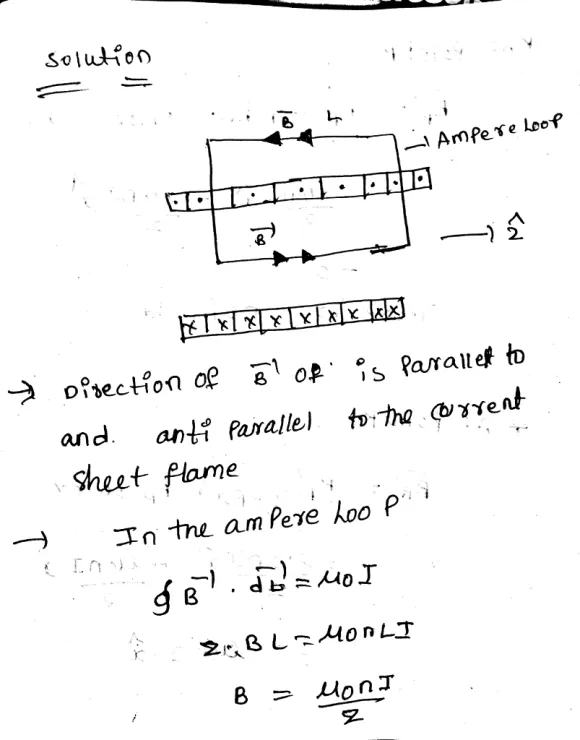 Solution
B L
Ampere Loop
B
ẑ
x x x x x x x x x
→ Direction of B of is Parallel to
and anti Parallel to the current
Sheet flame
→ In the ampere Loop
∮ B . db = μ0 I
2 B L = μ0 n L I
B = μ0 n I
2